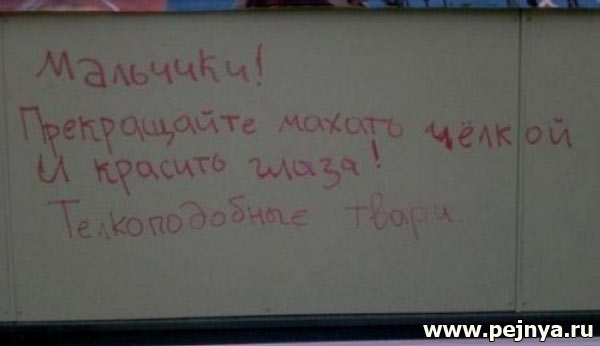 Мальчики!
Прекращайте махать чёлкой
И красить глаза!
Телкоподобные твари
www.pejnya.ru